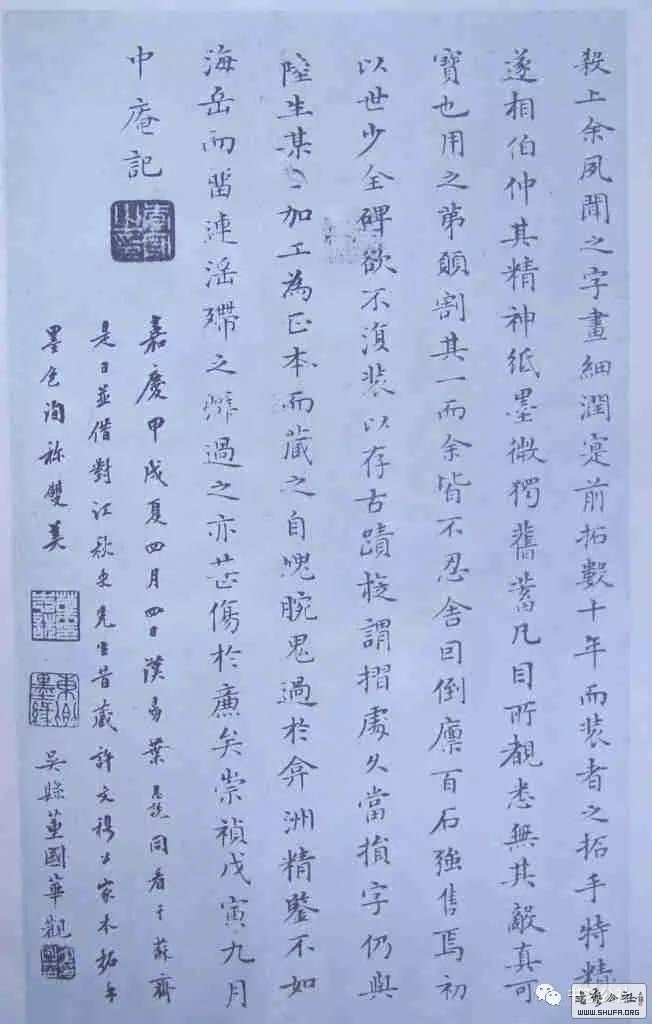 毅上余夙聞之字畫細潤寔前拓數十年而装者之拓手特精
遂相伯仲其精神紙墨微獨舊蓄凡目所覩悉無其敵真可
寶也用之第顛割其一而余皆不忍舍曰倒廪百石強售焉初
以世少全碑欲不復装以存古蹟按謂摺處久當損字仍與
陸生某〻加工為正本而蔵之自愧腕鬼過於弇洲精鑒不如
海岳而留連滛殢之癖過之亦甚傷於廉矣崇禎戊寅九月
中庵記
嘉慶甲戌夏四月四日漢陽葉志詵同看于蘇齋
是日並借對江秋史先生昔蔵許文穆公家本拓手
墨色洵称雙美
吳縣董國華觀
書藝公社
WWW.SHUFA.ORG